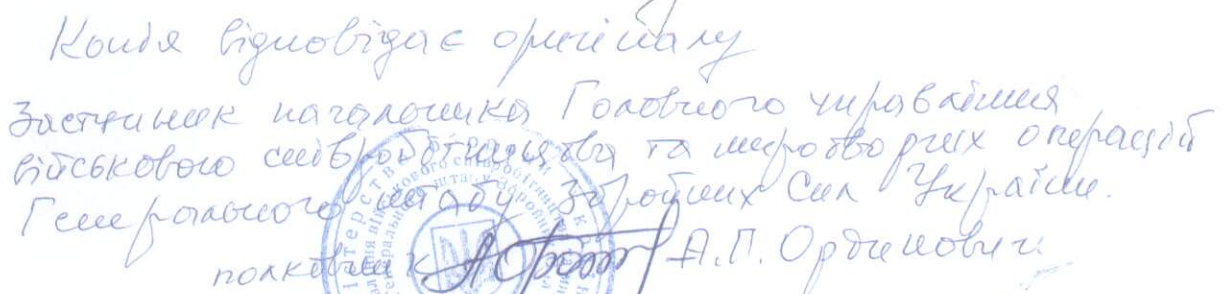 Копія відповідає оригіналу
Заступник начальника Головного управління
військового співробітництва та миротворчих операцій
Генерального штабу Збройних Сил України.
полковник А.П. Ординович